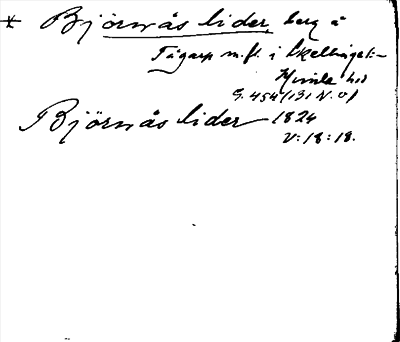 * Björnås lider, berg å
Tågarp m.fl. i Skellinget:-
Himle hd
G. 454/131 N. O/
Björnås lider 1824
V: 18: 18.